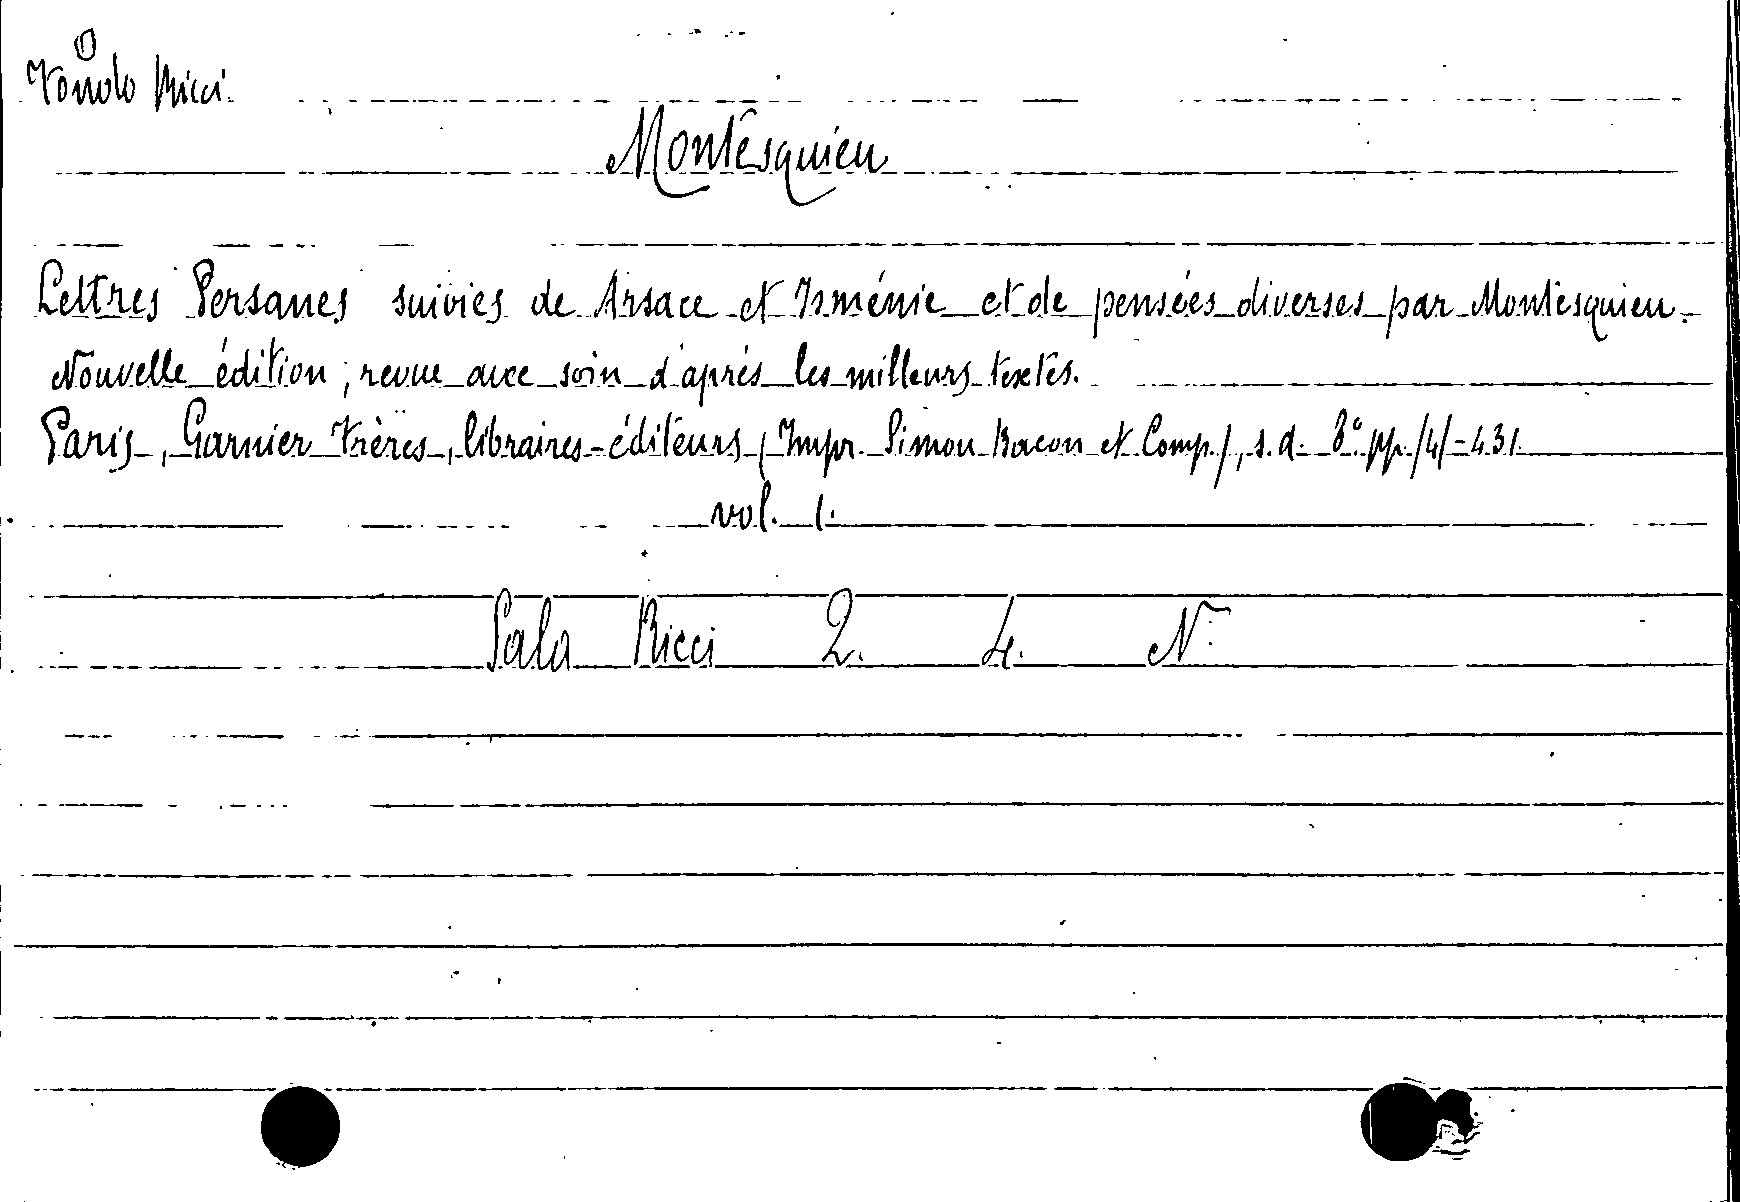 Fondo Ricci.
Montesquieu
Lettres Persanes suivies de Arsace et Isménie et de pensées diverses par Montesquieu.
Nouvelle édition, revue avec soin d'après les milleurs textes.
Paris, Garnier Frères, libraires-éditeurs (Impr. Simon Racon et Comp.), s.d. 8° pp. /4/-431.
vol. 1.
Sala Ricci 2. 4. N.